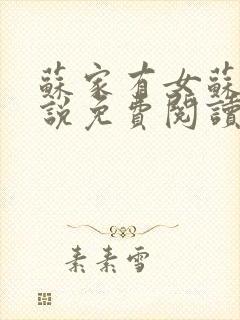 蘇家有女蘇
說免費閱讀
素素雪